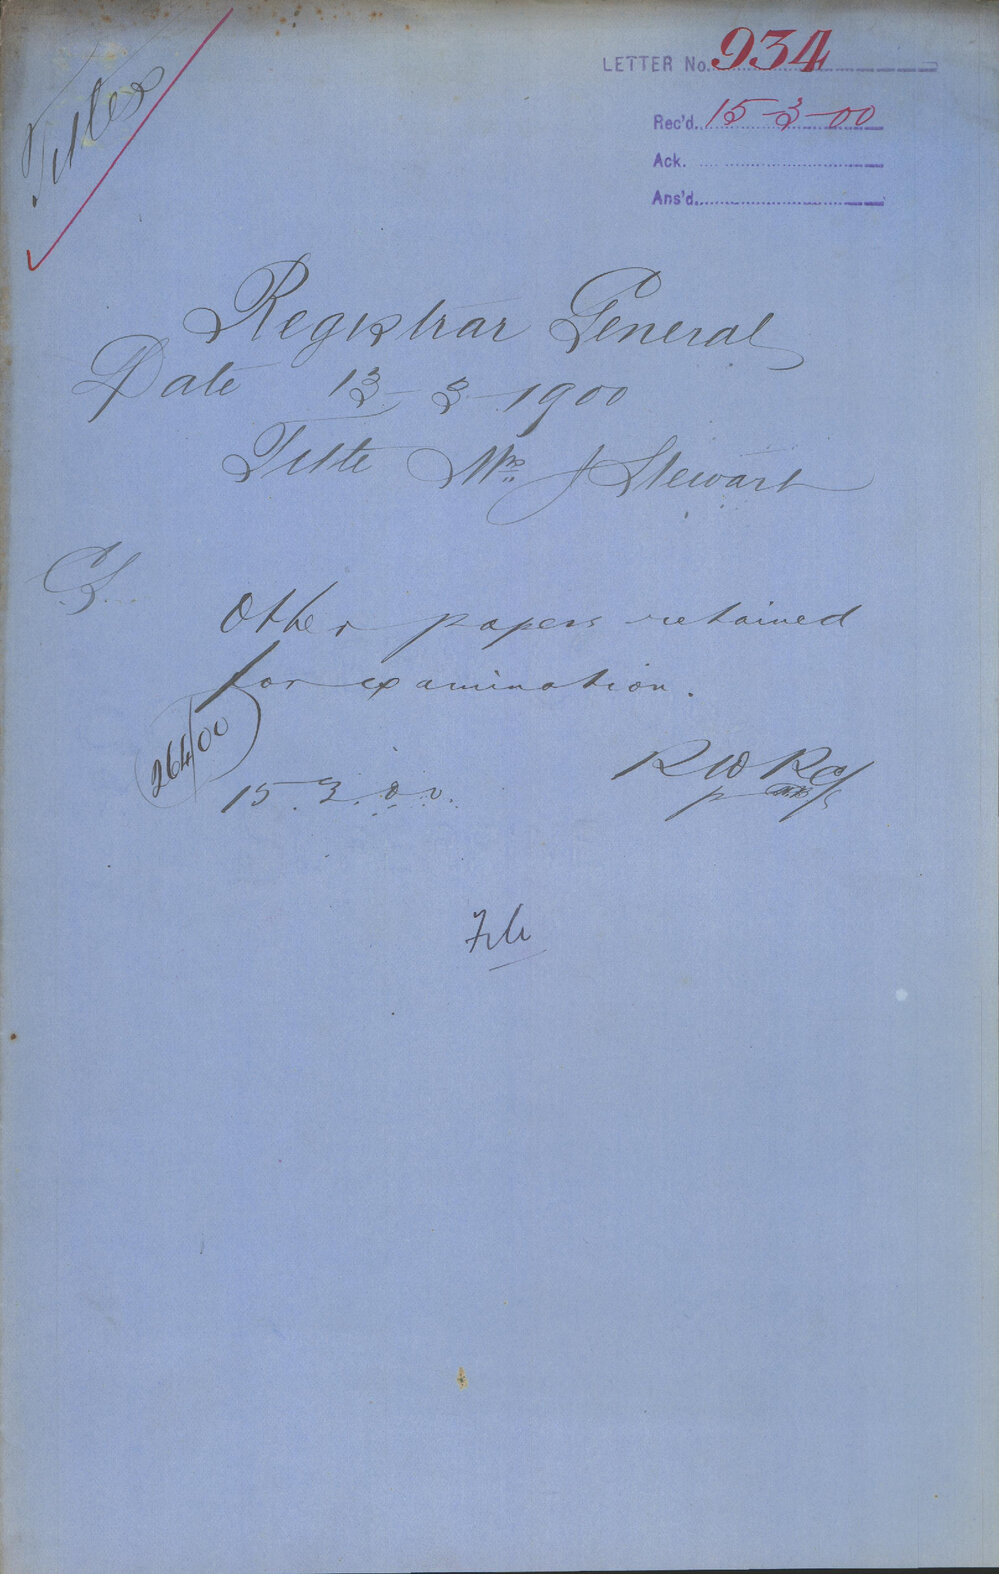 Titles
LETTER No. 934
Rec'd. 15-3-00
Ack.
Ans'd.
Registrar General
Date 13-3-1900
Title Mrs J Stewart
CS
Other papers retained
for examination.
264/00
15.3.00.
File